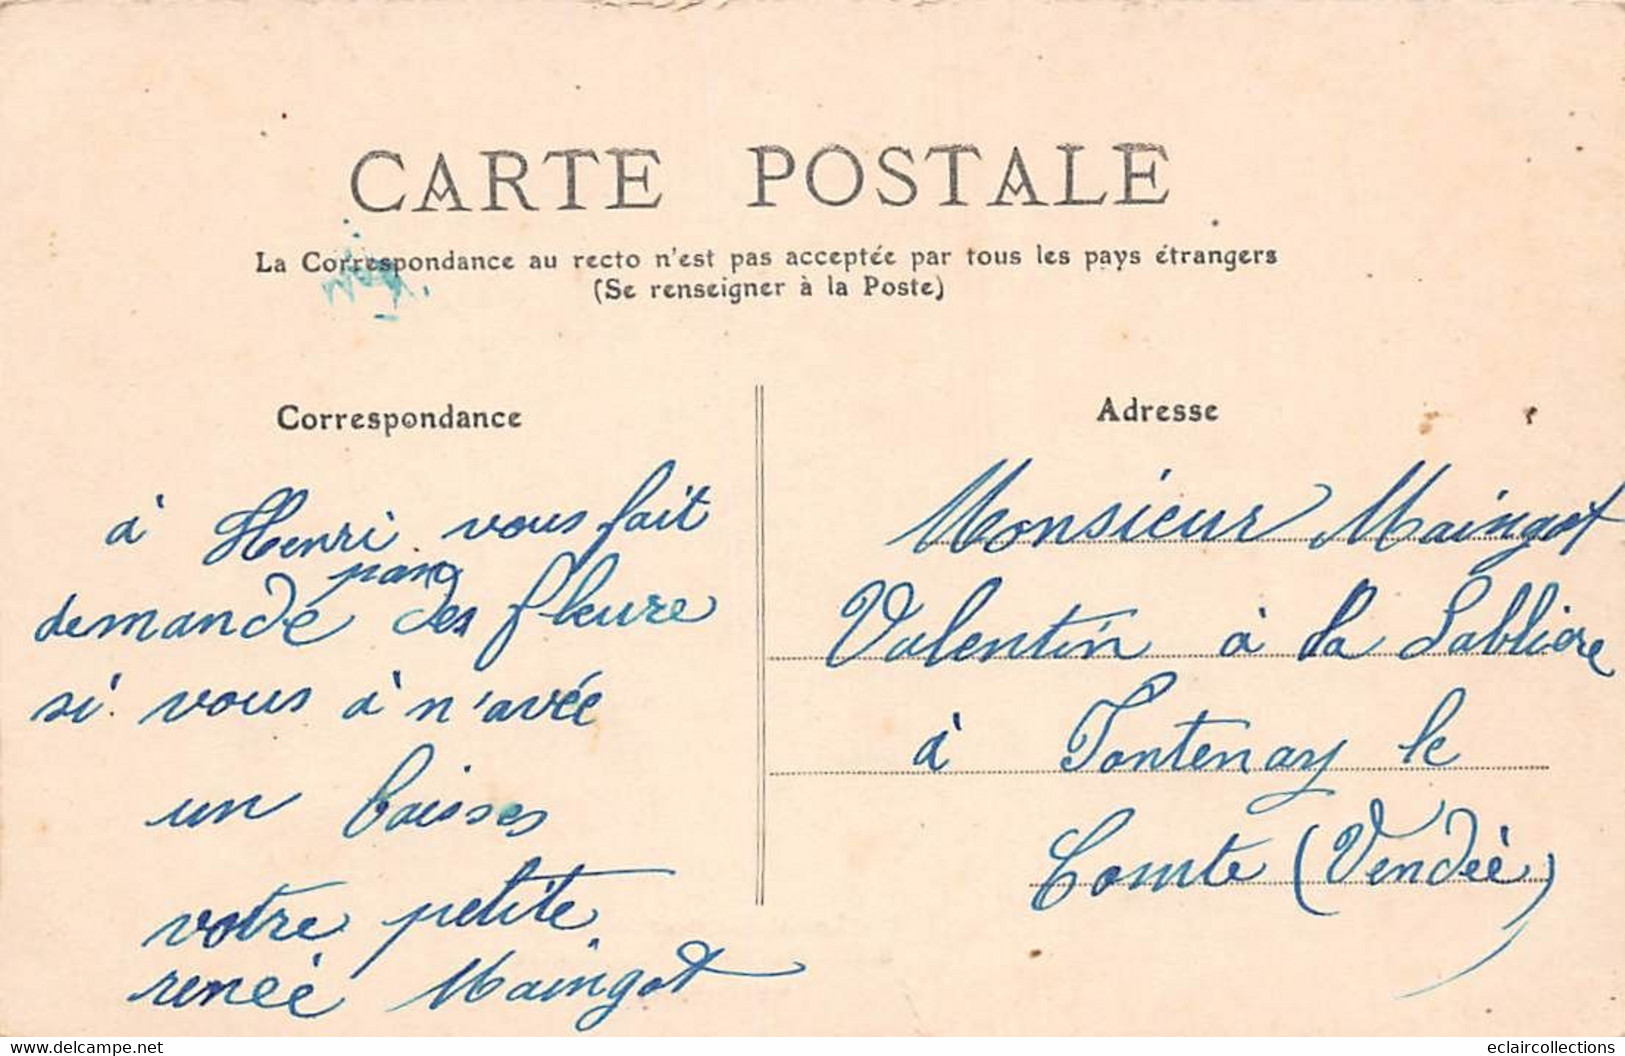 CARTE POSTALE
La Correspondance au recto n'est pas acceptée par tous les pays étrangers
(Se renseigner à la Poste)
Correspondance
à Henri vous fait
demandé des fleure
si vous à n'avée
un baisses
votre petite
renée Maingot
Adresse
Monsieur Maingot
Valentin à la Sabliere
à Fontenay le
Comte (Vendée)
delcampe.net
eclaircollections